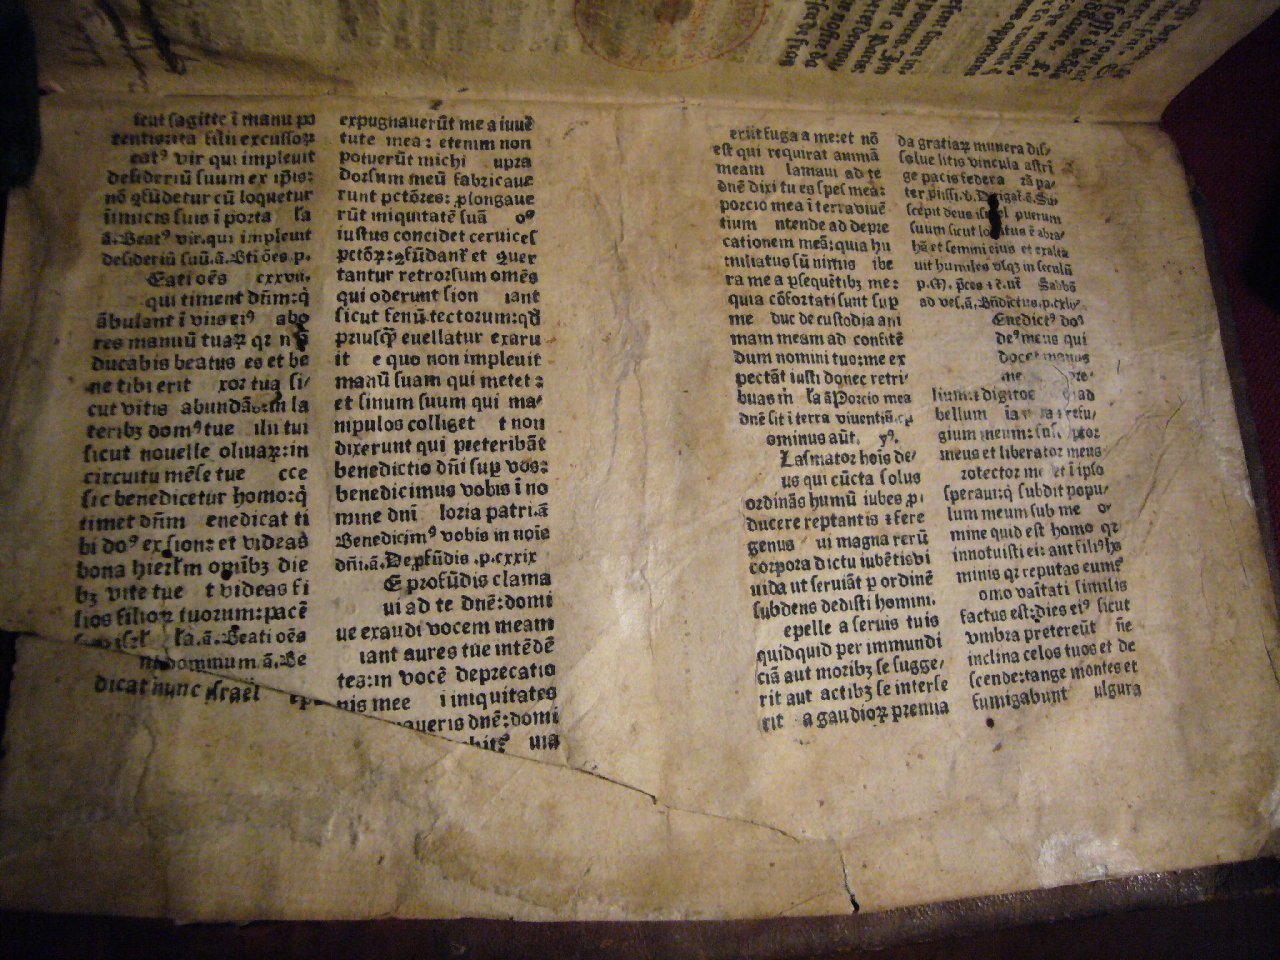 sicut sagitte ī manu po
tentis:ita filii excussoꝝ
eatꝰ vir qui impleuit
desideriū suum ex ip̄is:
nō ꝯfūdetur cū loquetur
inimicis suis ī porta la
ā. Beatꝰ vir.qui impleuit
desideriū suū.ā. Vti oēs p.
Eati oēs cxxvii.
qui timent dn̄m:q̄
ābulant ī viis eiꝰ abo
res manuū tuaꝝ qꝛ
ducabis beatus es et be
ne tibi erit xor tua si/
cut vitis abundās:in la
teribꝫ domꝰ tue ilii tui
sicut nouelle oliuaꝝ:in
circuitu mēse tue cce
sic benedicetur homo:q̄
timet dn̄m enedicat ti
bi doꝰ ex sion: et videas
bona hierl̄m om̄ibꝫ die
bꝫ vite tue t videas fi
lios filioꝝ tuorum:pacē
ła.ā. Beati oēs
dominum ā. Be
dicat nunc israel epe
expugnauerūt me a iuuē
tute mea: etenim non
potuerūt michi upra
dorsum meū fabricaue
runt pctōres: ꝓlongaue
rūt iniquitatē suā oꝰ
iustus concidet ceruices
pctōꝝ:ꝯfūdant̄ et ꝯuer
tantur retrorsum omēs
qui oderunt sion iant
sicut fenū tectorum:qđ
priusqꝫ euellatur exaru
it e quo non impleuit
manū suam qui metet:
et sinum suum qui ma/
nipulos colliget t non
dixerunt qui preteribāt
benedictio dn̄i suꝑ vos:
benedicimus vobis ī no
mine dni loria patri.ā
Benedicimꝰ vobis in noīe
dn̄i.ā. De ꝓfūdis .p.cxxix
E profūdis clama
ui ad te dnē: domi
ue exaudi vocem meam
iant aures tue intēdē
tes:in vocē deprecatio
nis mee i iniquitates
aueris dnē:domi
erit fuga a me:et nō
est qui requirat animā
meam lamaui ad te
dnē dixi tu es spes mea:
porcio mea ī terra viuē
tium ntende ad depre
cationem meā:quia hu
miliatus sū nimis ibe
ra me a ꝑsequētibꝫ me:
quia cōfortati sunt suꝑ
me duc de custodia ani
mam meam ad confitē
dum nomini tuo:me ex
pectāt iusti donec retri/
buas m̄ ła ā Porcio mea
dnē sit ī terra viuentiū.
ominus aūt. yꝰ.
Lasmator hoīs de/
us qui cūcta solus
ordinās humū iubes ꝓ/
ducere reptantis ⁊ fere
genus ui magna rerū
corpora dictu iubētis vi
uida ut seruiāt p ordinē
subdens dedisti homini.
epelle a seruis tuis
quidquid per immundi
ciā aut moribꝫ se sugge/
rit aut actibꝫ se interse
rit a gaudioꝝ premia
da gratiaꝝ munera dis/
solue litis vincula astrī
ge pacis federa rā pa/
ter piissi. v. Dirigat̄.ō. Su
scepit deus israel puerum
suum sicut locutus ē abra/
hā et semini eius et exalta
uit humiles vsqꝫ in seculū
p.M. p̄ces ⁊ c̄.ut̄ Sabbō
ad ves.ā. Bn̄dictus.p.cxliij.
Enedictꝰ doꝰ
deꝰ meus qui
docet manus
lium:⁊ digitos ad
bellum ia refu/
gium meum:
meus et liberator meus
rotector me et ī ipso
speraui:q̄ subdit popu/
lum meum sub me oꝰ
mine quid est homo qꝛ
innotuisti ei: aut filiꝰ ho
minis qꝛ reputas eum
omo vaītati similis
factus est:dies eiꝰ sicut
vmbra pretereūt n̄e
inclina celos tuos et de
scende:tange montes et
fumigabunt ulgura